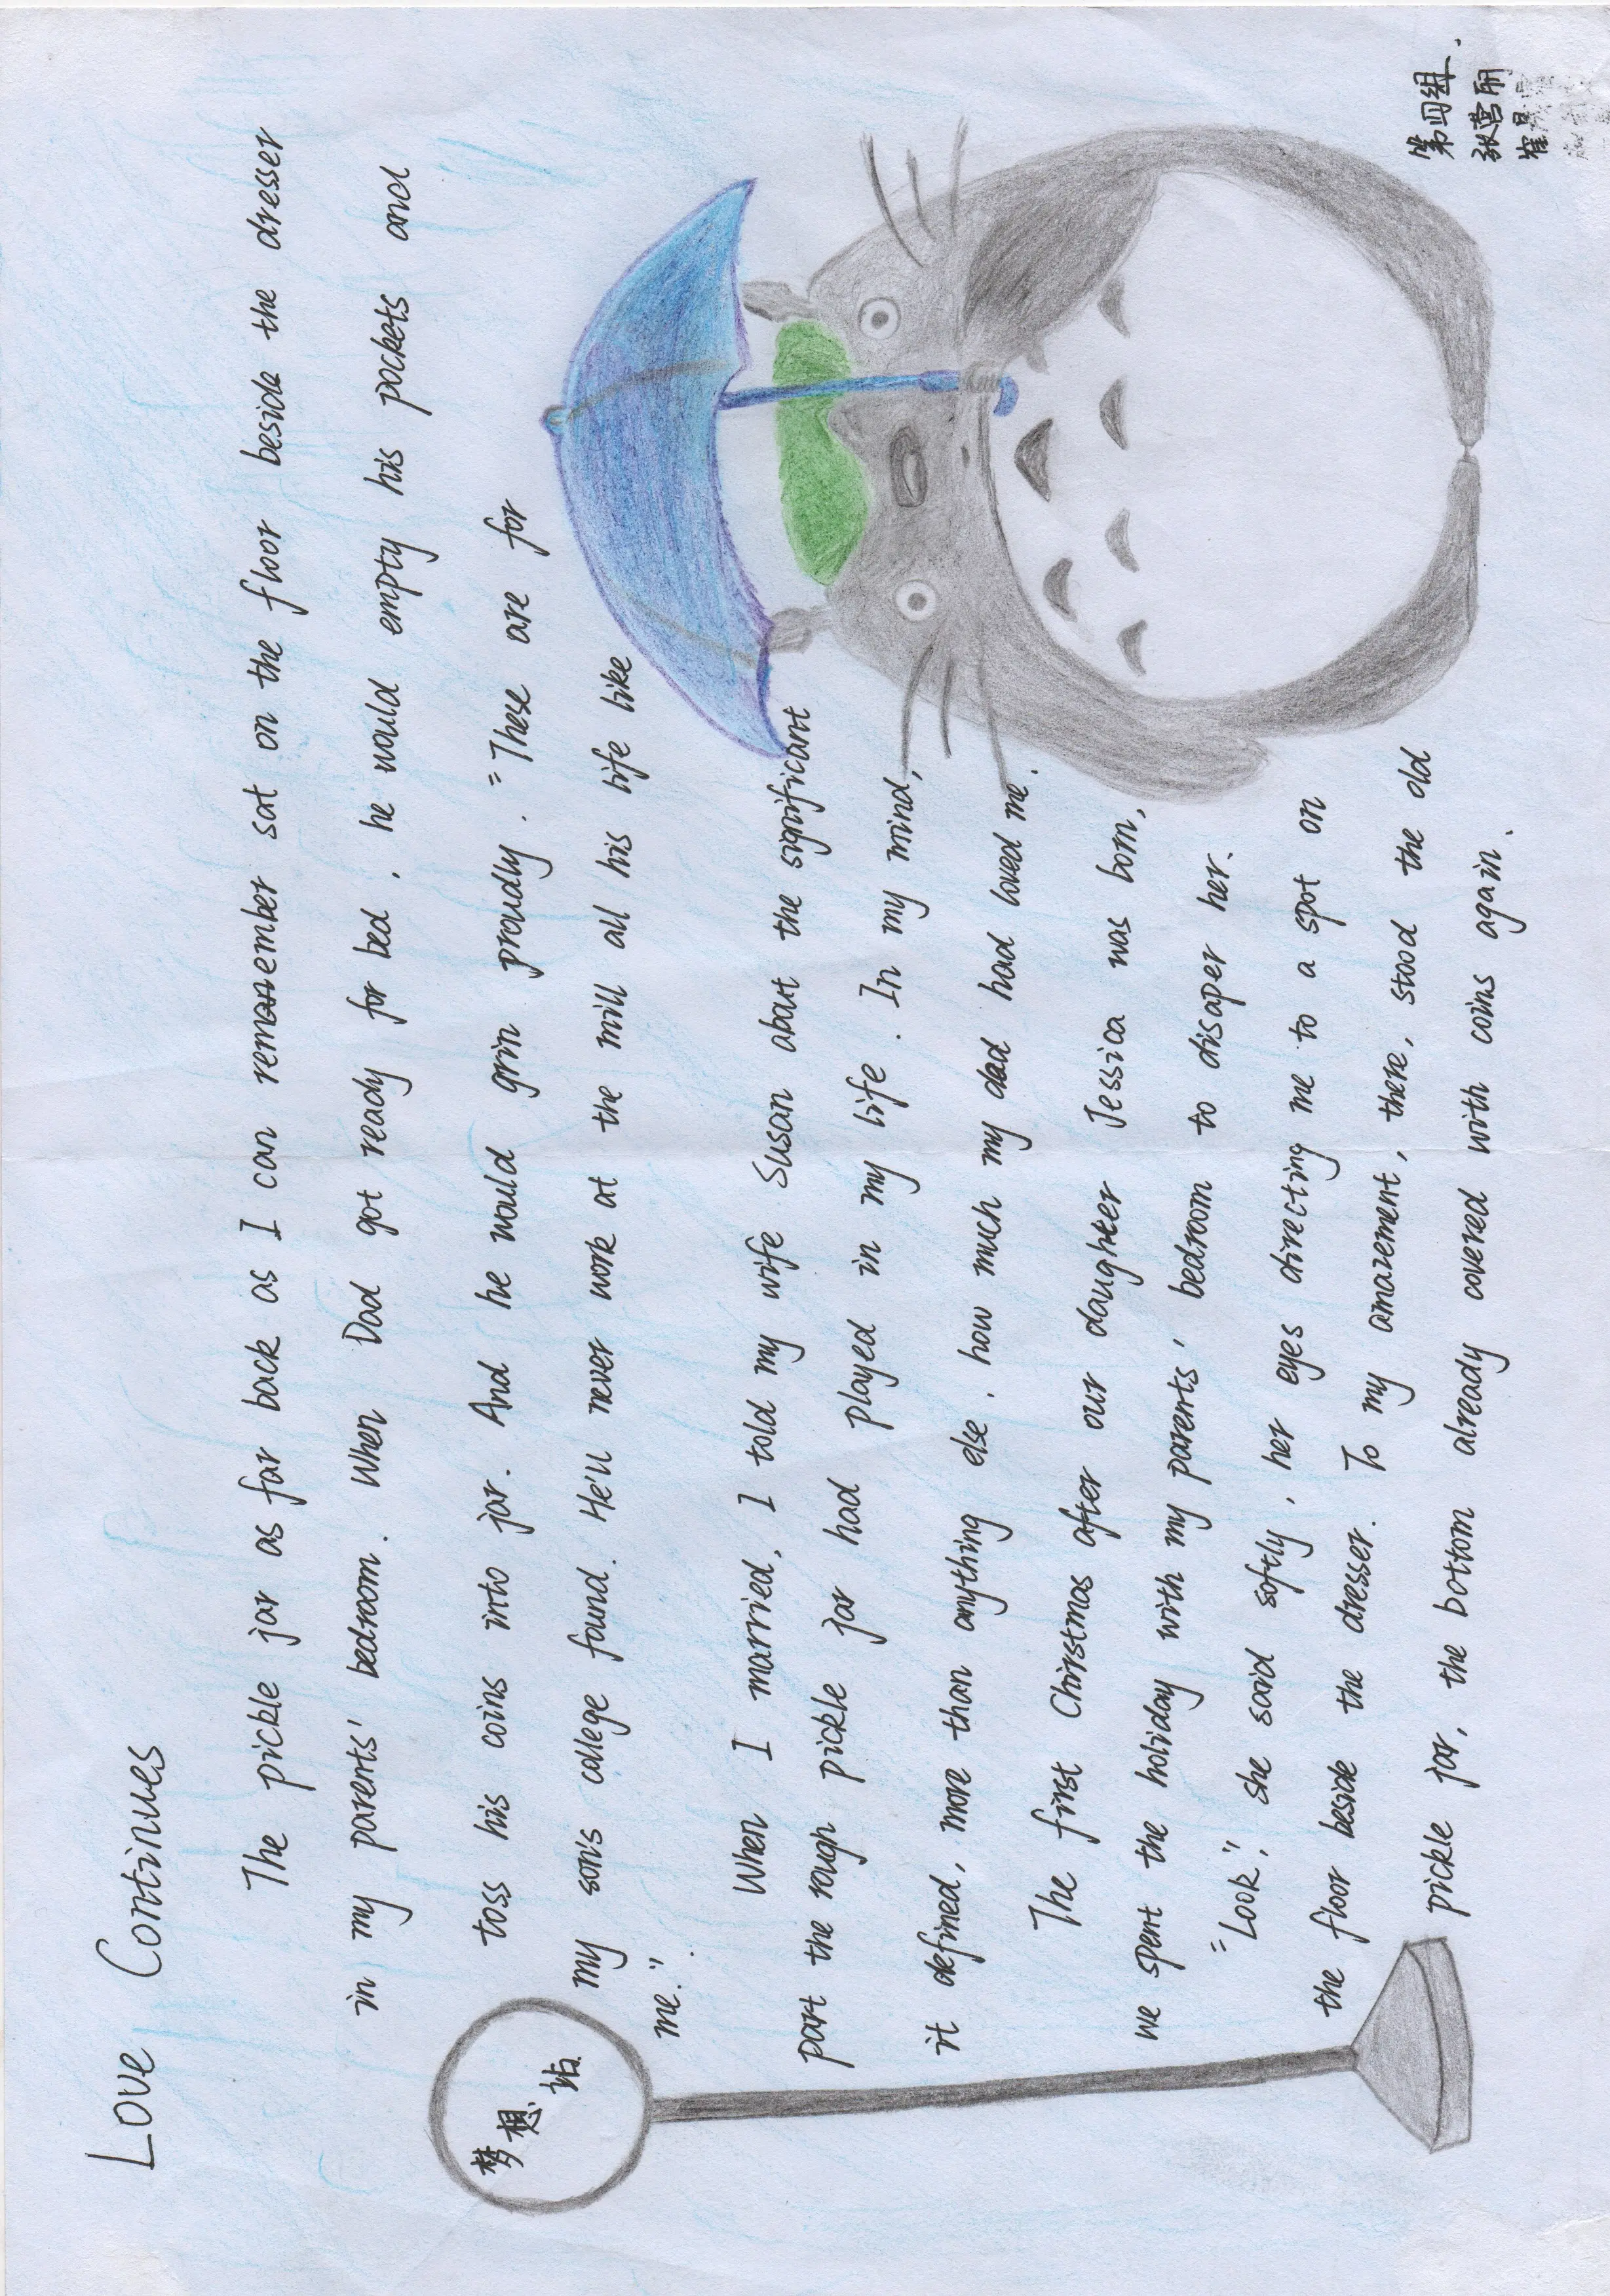 Love Continues
The pickle jar as far back as I can remember sat on the floor beside the dresser
in my parents' bedroom. When Dad got ready for bed, he would empty his pockets and
toss his coins into jar. And he would grin proudly. "These are for
my son's college found. He'll never work at the mill all his life like
me.".
When I married, I told my wife Susan about the significant
part the rough pickle jar had played in my life. In my mind,
it defined, more than anything else, how much my dad had loved me.
The first Chirstmas after our daughter Jessica was born,
we spent the holiday with my parents' bedroom to disaper her.
"Look," she said softly, her eyes directing me to a spot on
the floor beside the dresser. To my amazement, there, stood the old
pickle jar, the bottom already covered with coins again.
梦想站
第四组.
张营丽